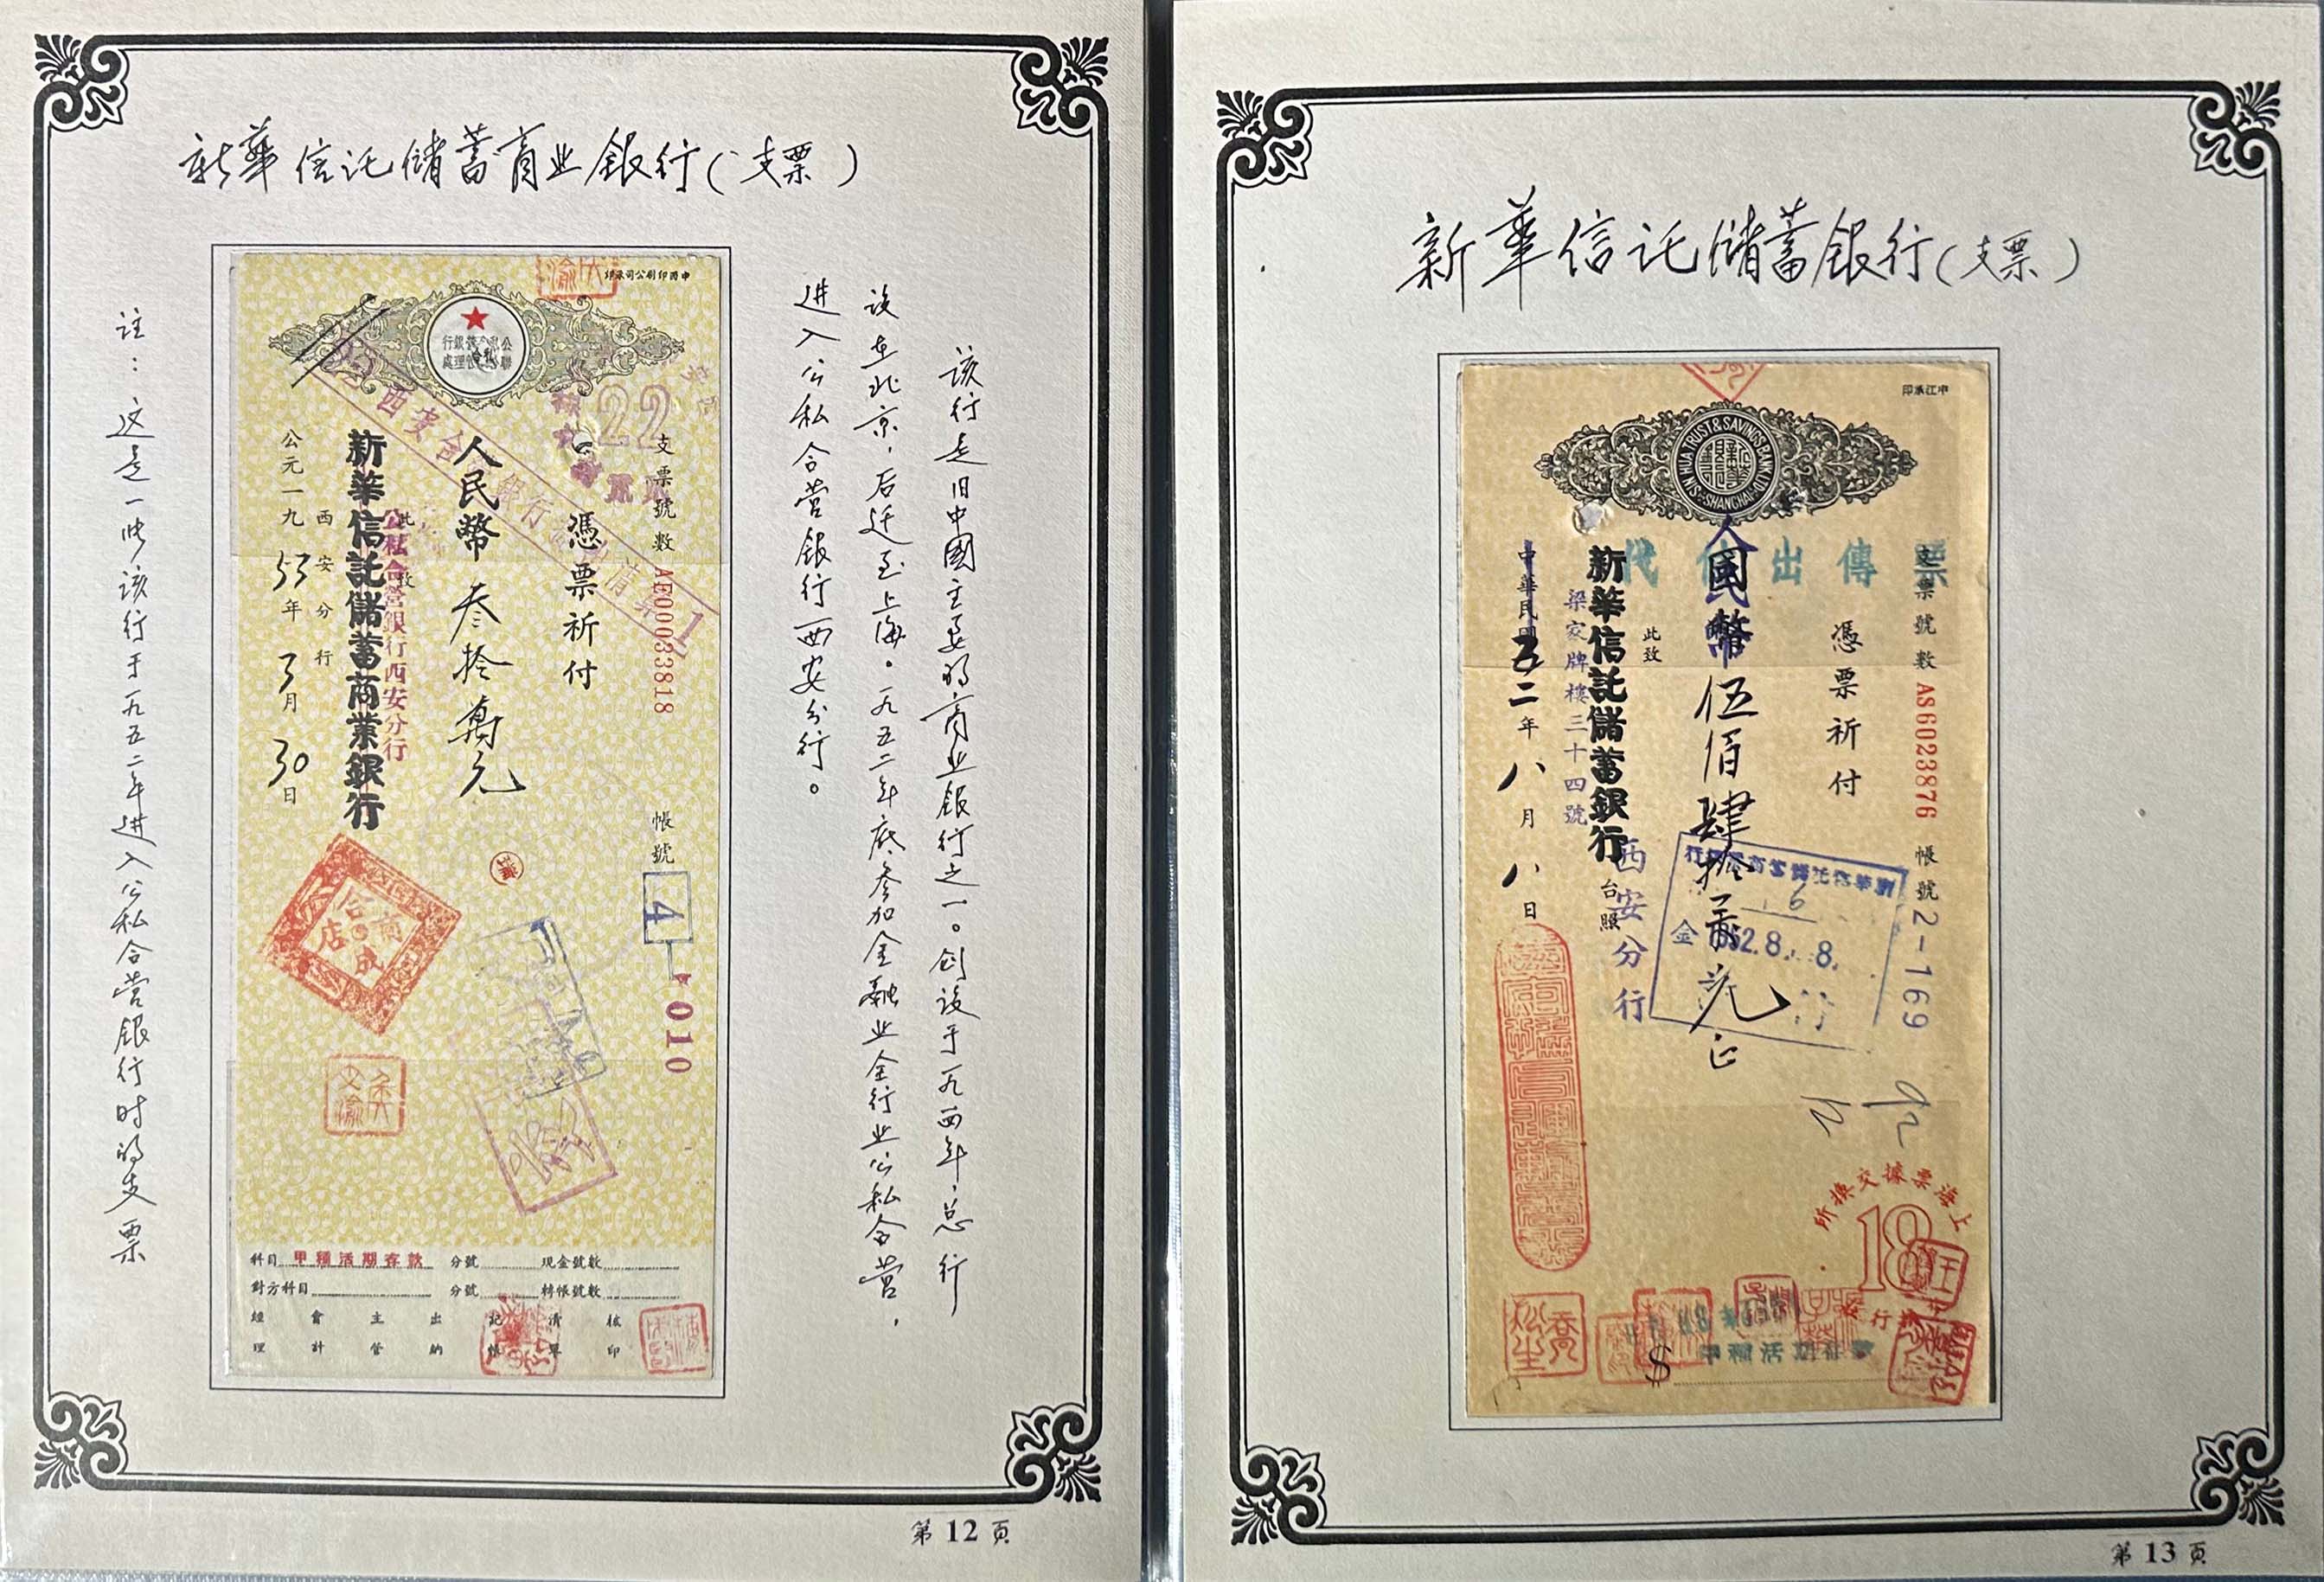 新華信託儲蓄商业銀行(支票)
该行是旧中國主要的商业銀行之一。创设于一九一四年,总行
设在北京,后迁至上海。一九五二年底参加全融业全行业公私合营,
进入公私合营銀行西安分行。
中國印刷公司承印
公私合營銀行
聯合總管理處
22
支票號數 AE00033818
帳號 4-010
憑票祈付
人民幣叁拾萬元
此致
公私合营銀行西安分行
新華信託儲蓄商業銀行
西安分行
公元一九53年3月30日
科目 甲種活期存款 分號 現金號數
對方科目 分號 轉帳號數
經理 會計 主管 出納 記帳 清單 核印
註:这是一些该行于一九五二年进入公私合营銀行时的支票
第12頁
新華信託儲蓄銀行(支票)
中江承印
SIN HUA TRUST & SAVINGS BANK LTD. SHANGHAI
支票號數 AS6023876 帳號 2-169
票傳出付代
憑票祈付
國幣伍佰肆拾萬元正
此致
新華信託儲蓄銀行 台照
西安分行
梁家牌樓三十四號
中華民國五二年八月八日
1952.8.8.
上海票據交換所
18
喬松生
甲種活期存款
$
第13頁